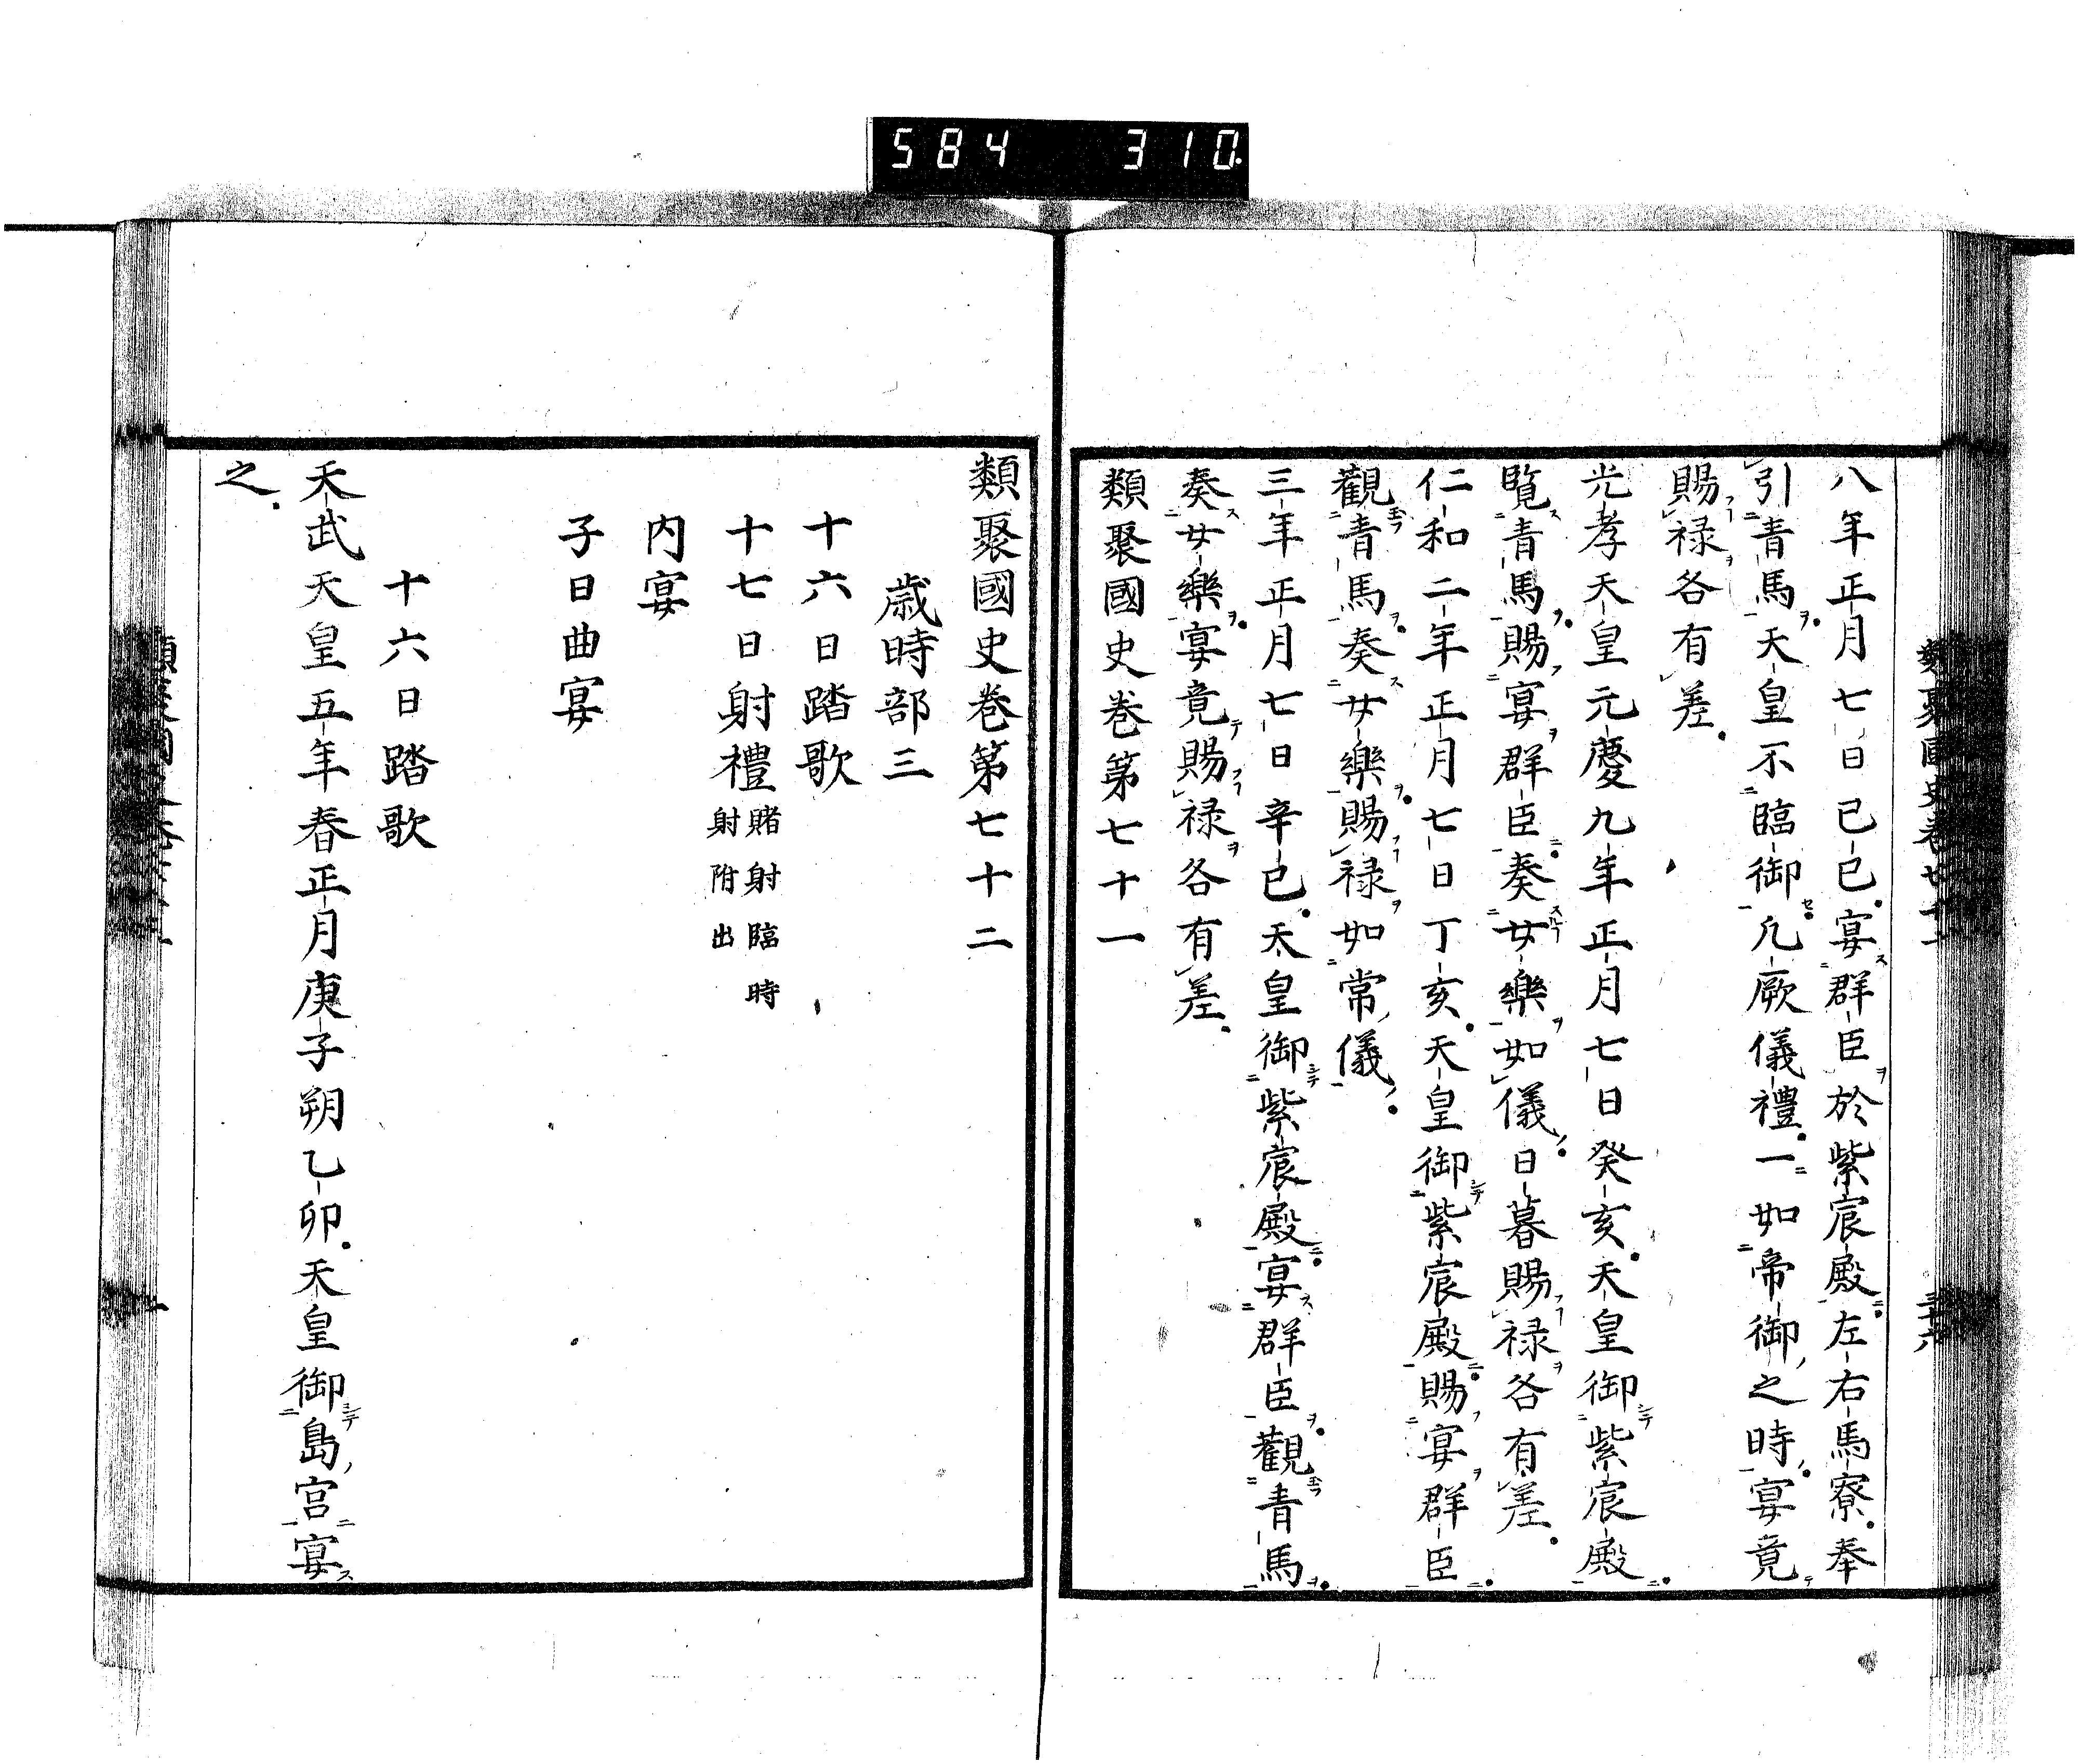 584 310
八年正月七日己巳宴群臣於紫宸殿左右馬寮奉
引青馬天皇不臨御凡厥儀禮一如帝御之時宴竟
賜禄各有差
光孝天皇元慶九年正月七日癸亥天皇御紫宸殿
覧青馬賜宴群臣奏女樂如儀日暮賜禄各有差
仁和二年正月七日丁亥天皇御紫宸殿賜宴群臣
觀青馬奏女樂賜禄如常儀
三年正月七日辛巳天皇御紫宸殿宴群臣觀青馬
奏女樂宴竟賜禄各有差
類聚國史巻第七十一
類聚國史巻第七十二
歳時部三
十六日踏歌
十七日射禮 賭射臨時
射附出
内宴
子日曲宴
十六日踏歌
天武天皇五年春正月庚子朔乙卯天皇御島宮宴
之